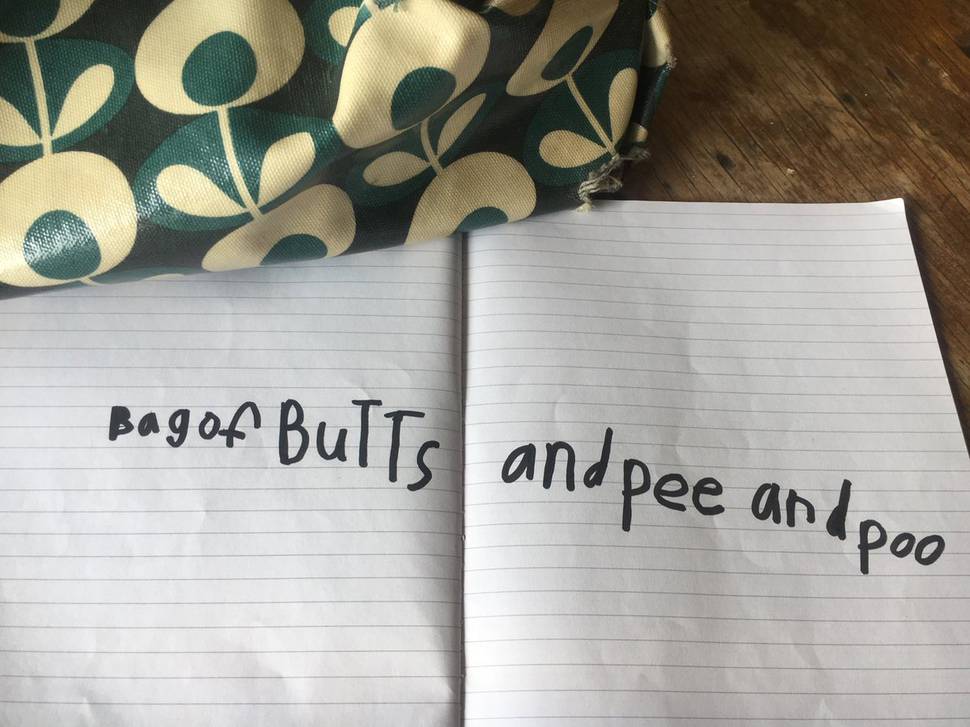 Bag of BuTTs and pee and poo